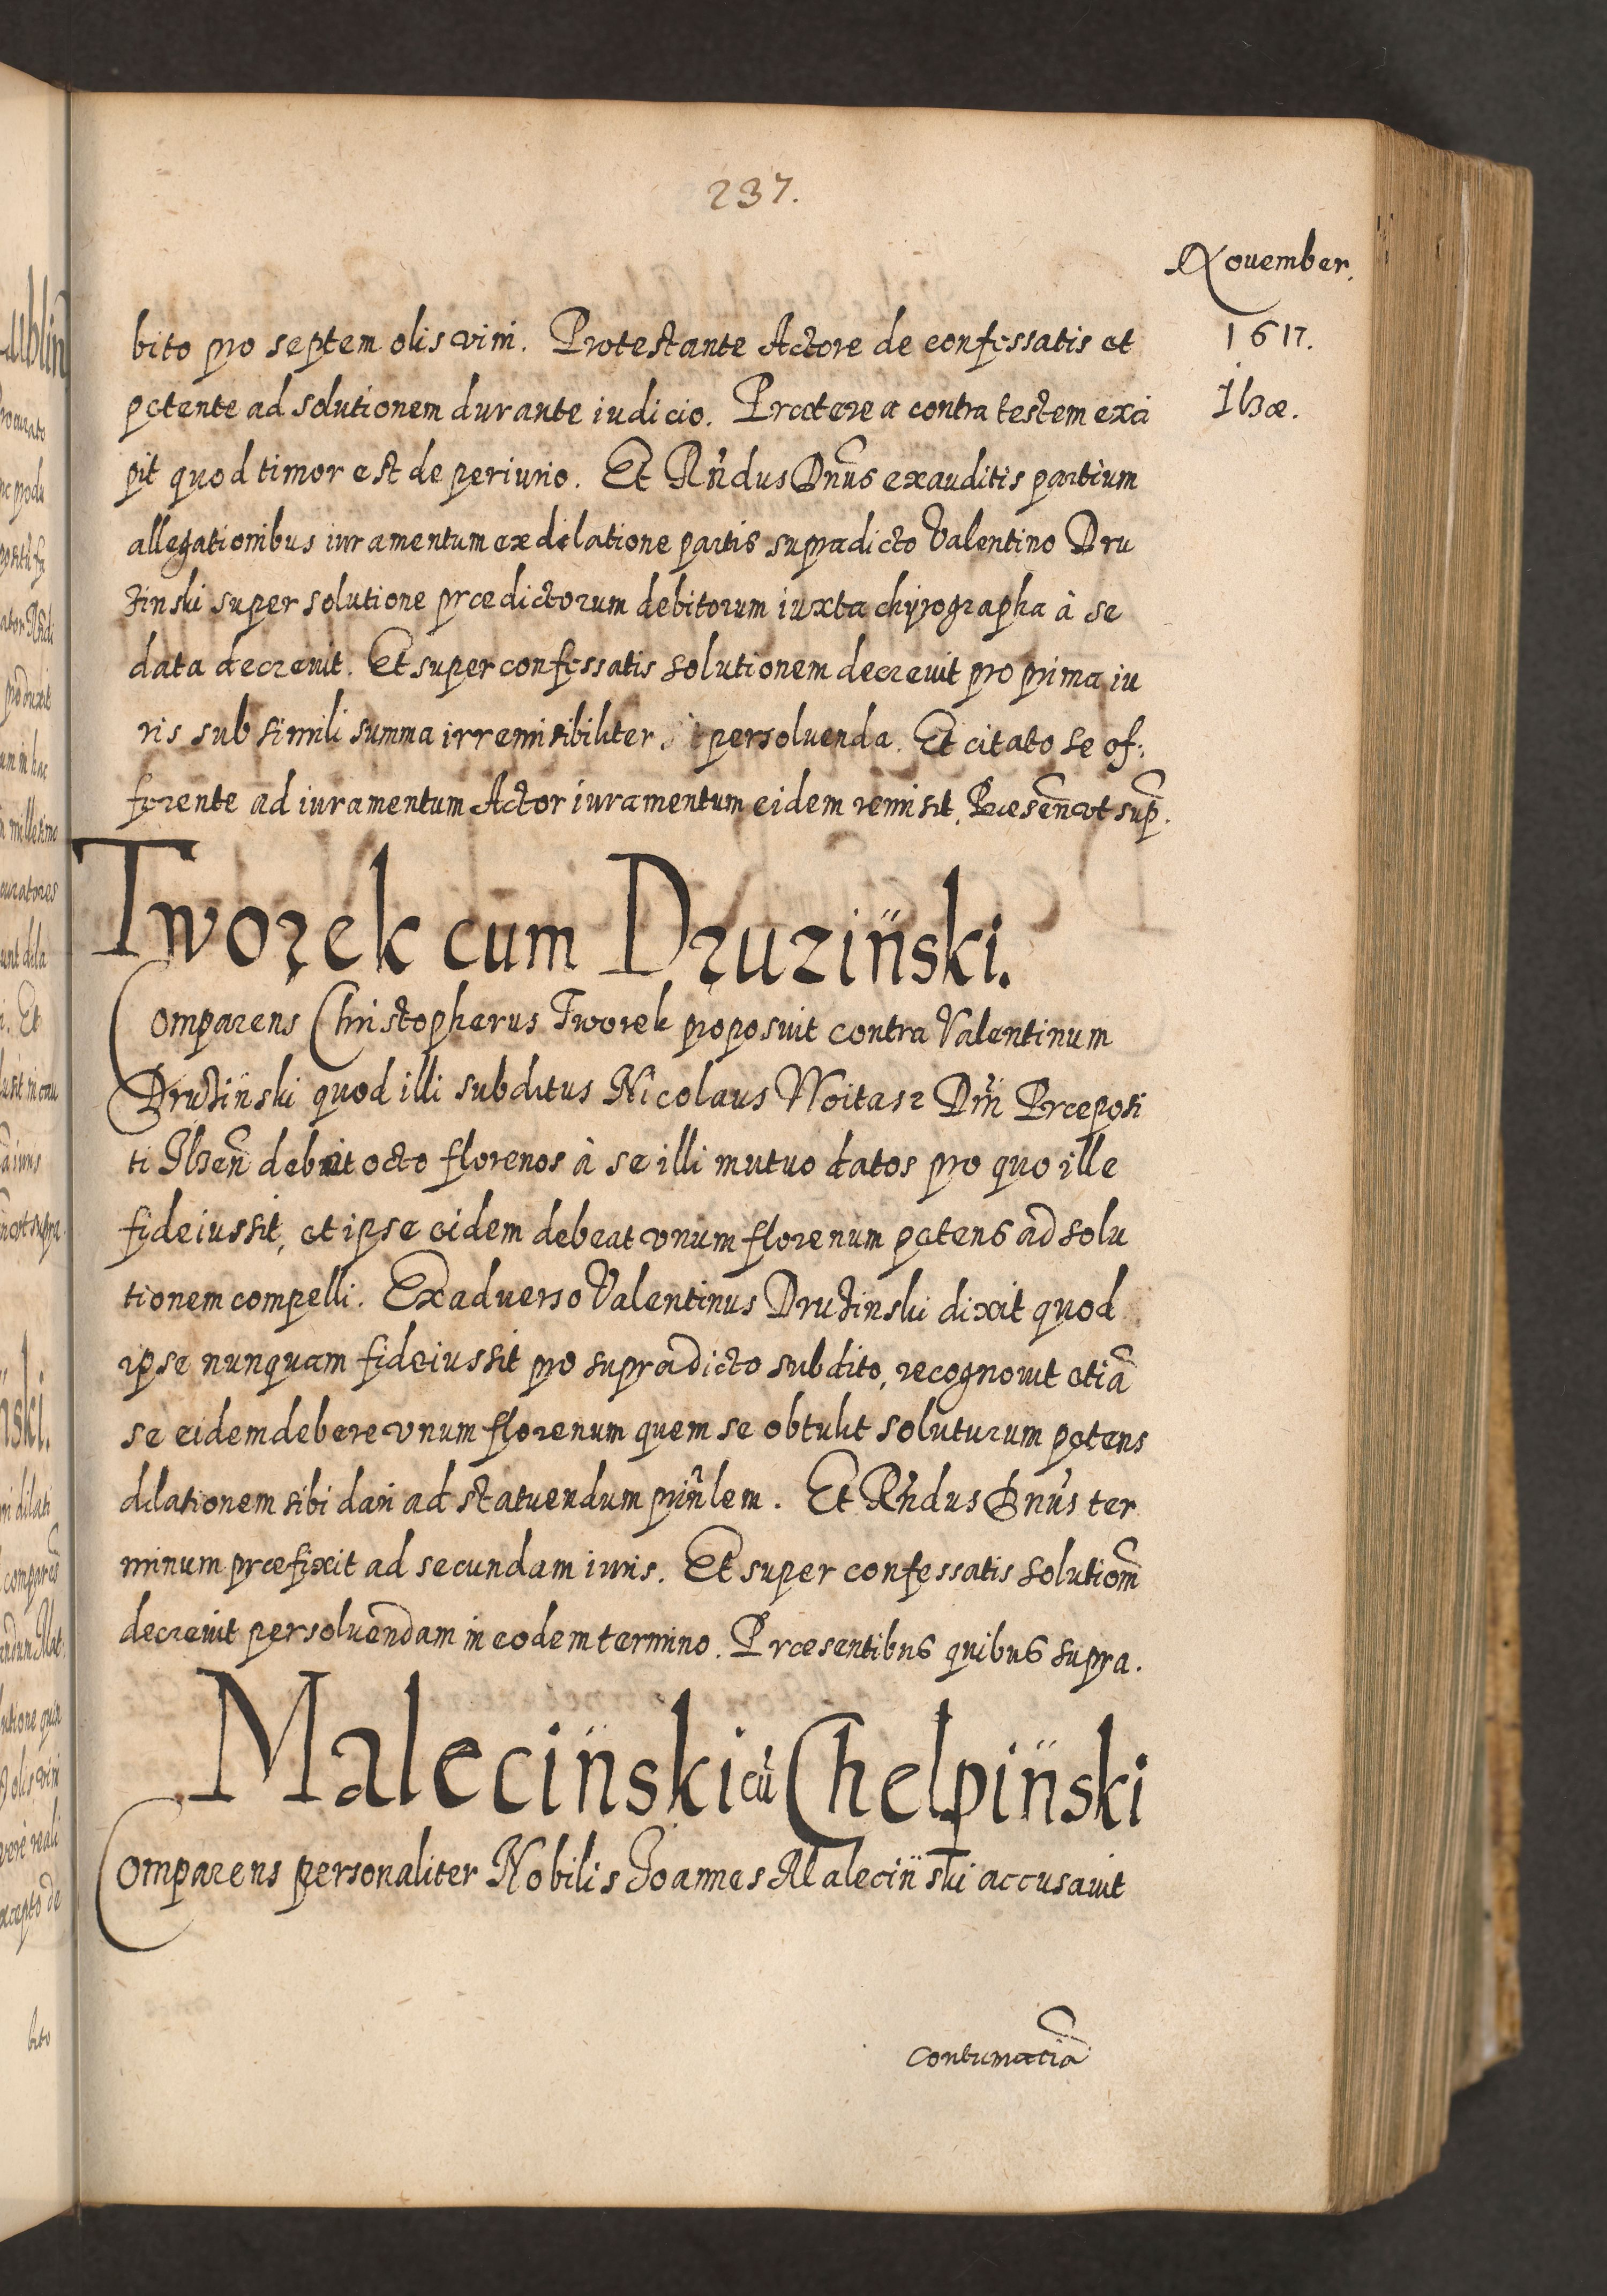 237.
November.
1617.
Ilzæ.
bito pro septem olis vini. Protestante Actore de confessatis et
petente ad solutionem durante iudicio. Præterea contra testem exci
pit quod timor est de periurio. Et Rñdus Dnũs exauditis partium
allegationibus iuramentum ex delatione partis supradicto Valentino Dru
zinski super solutione prædictorum debitorum iuxta chyrographa à se
data decrevit. Et super confessatis solutionem decrevit pro prima iu
ris sub simili summa irremisibiliter persoluenda. Et citato se of:
ferente ad iuramentum Actor iuramentum eidem remisit. Præseñ vt sup̃.
Tworek cum Druziński.
Comparens Christopherus Tworek proposuit contra Valentinum
Druzinski quod illi subditus Nicolaus Woitasz Dñi Præposi
ti Ilzeñ debuit octo florenos à se illi mutuo datos pro quo ille
fideiussit, et ipse eidem debeat vnum florenum petens ad solu
tionem compelli. Ex aduerso Valentinus Druzinski dixit quod
ipse nunquam fideiussit pro supradicto subdito, recognovit etiã
se eidem debere vnum florenum quem se obtulit soluturum petens
dilationem sibi dari ad statuendum prinlem. Et Rñdus Dnũs ter
minum præfixit ad secundam iuris. Et super confessatis solutiom̃
decrevit persoluendam in eodem termino. Præsentibus quibus supra.
Maleciński cũ Chelpiński
Comparens personaliter Nobilis Joannes Malecinski accusavit
contumaciã